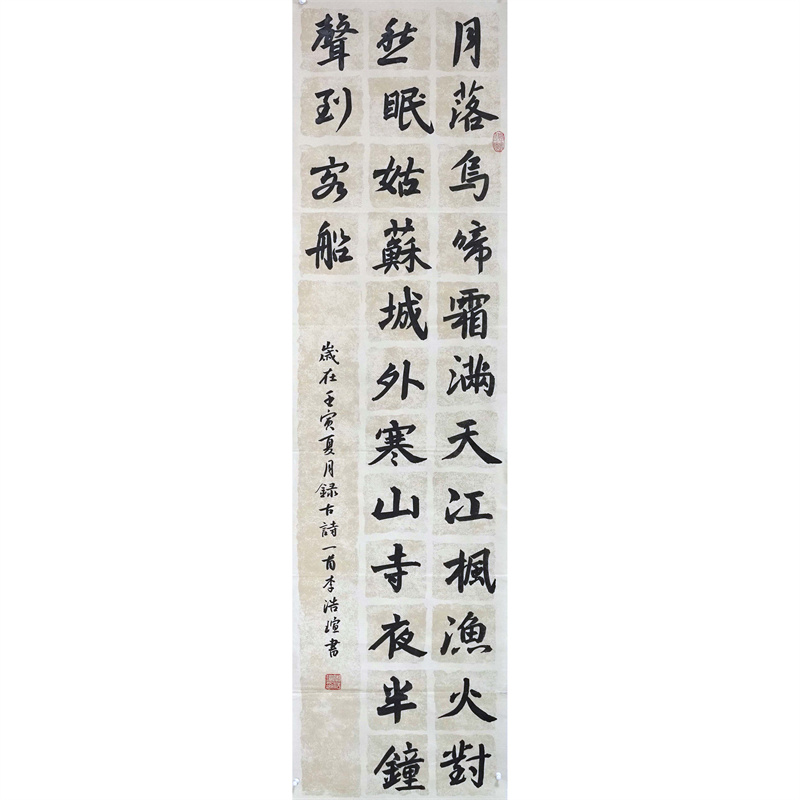 月落烏啼霜滿天江楓漁火對
愁眠姑蘇城外寒山寺夜半鐘
聲到客船
歲在壬寅夏月録古詩一首李浩瑄書